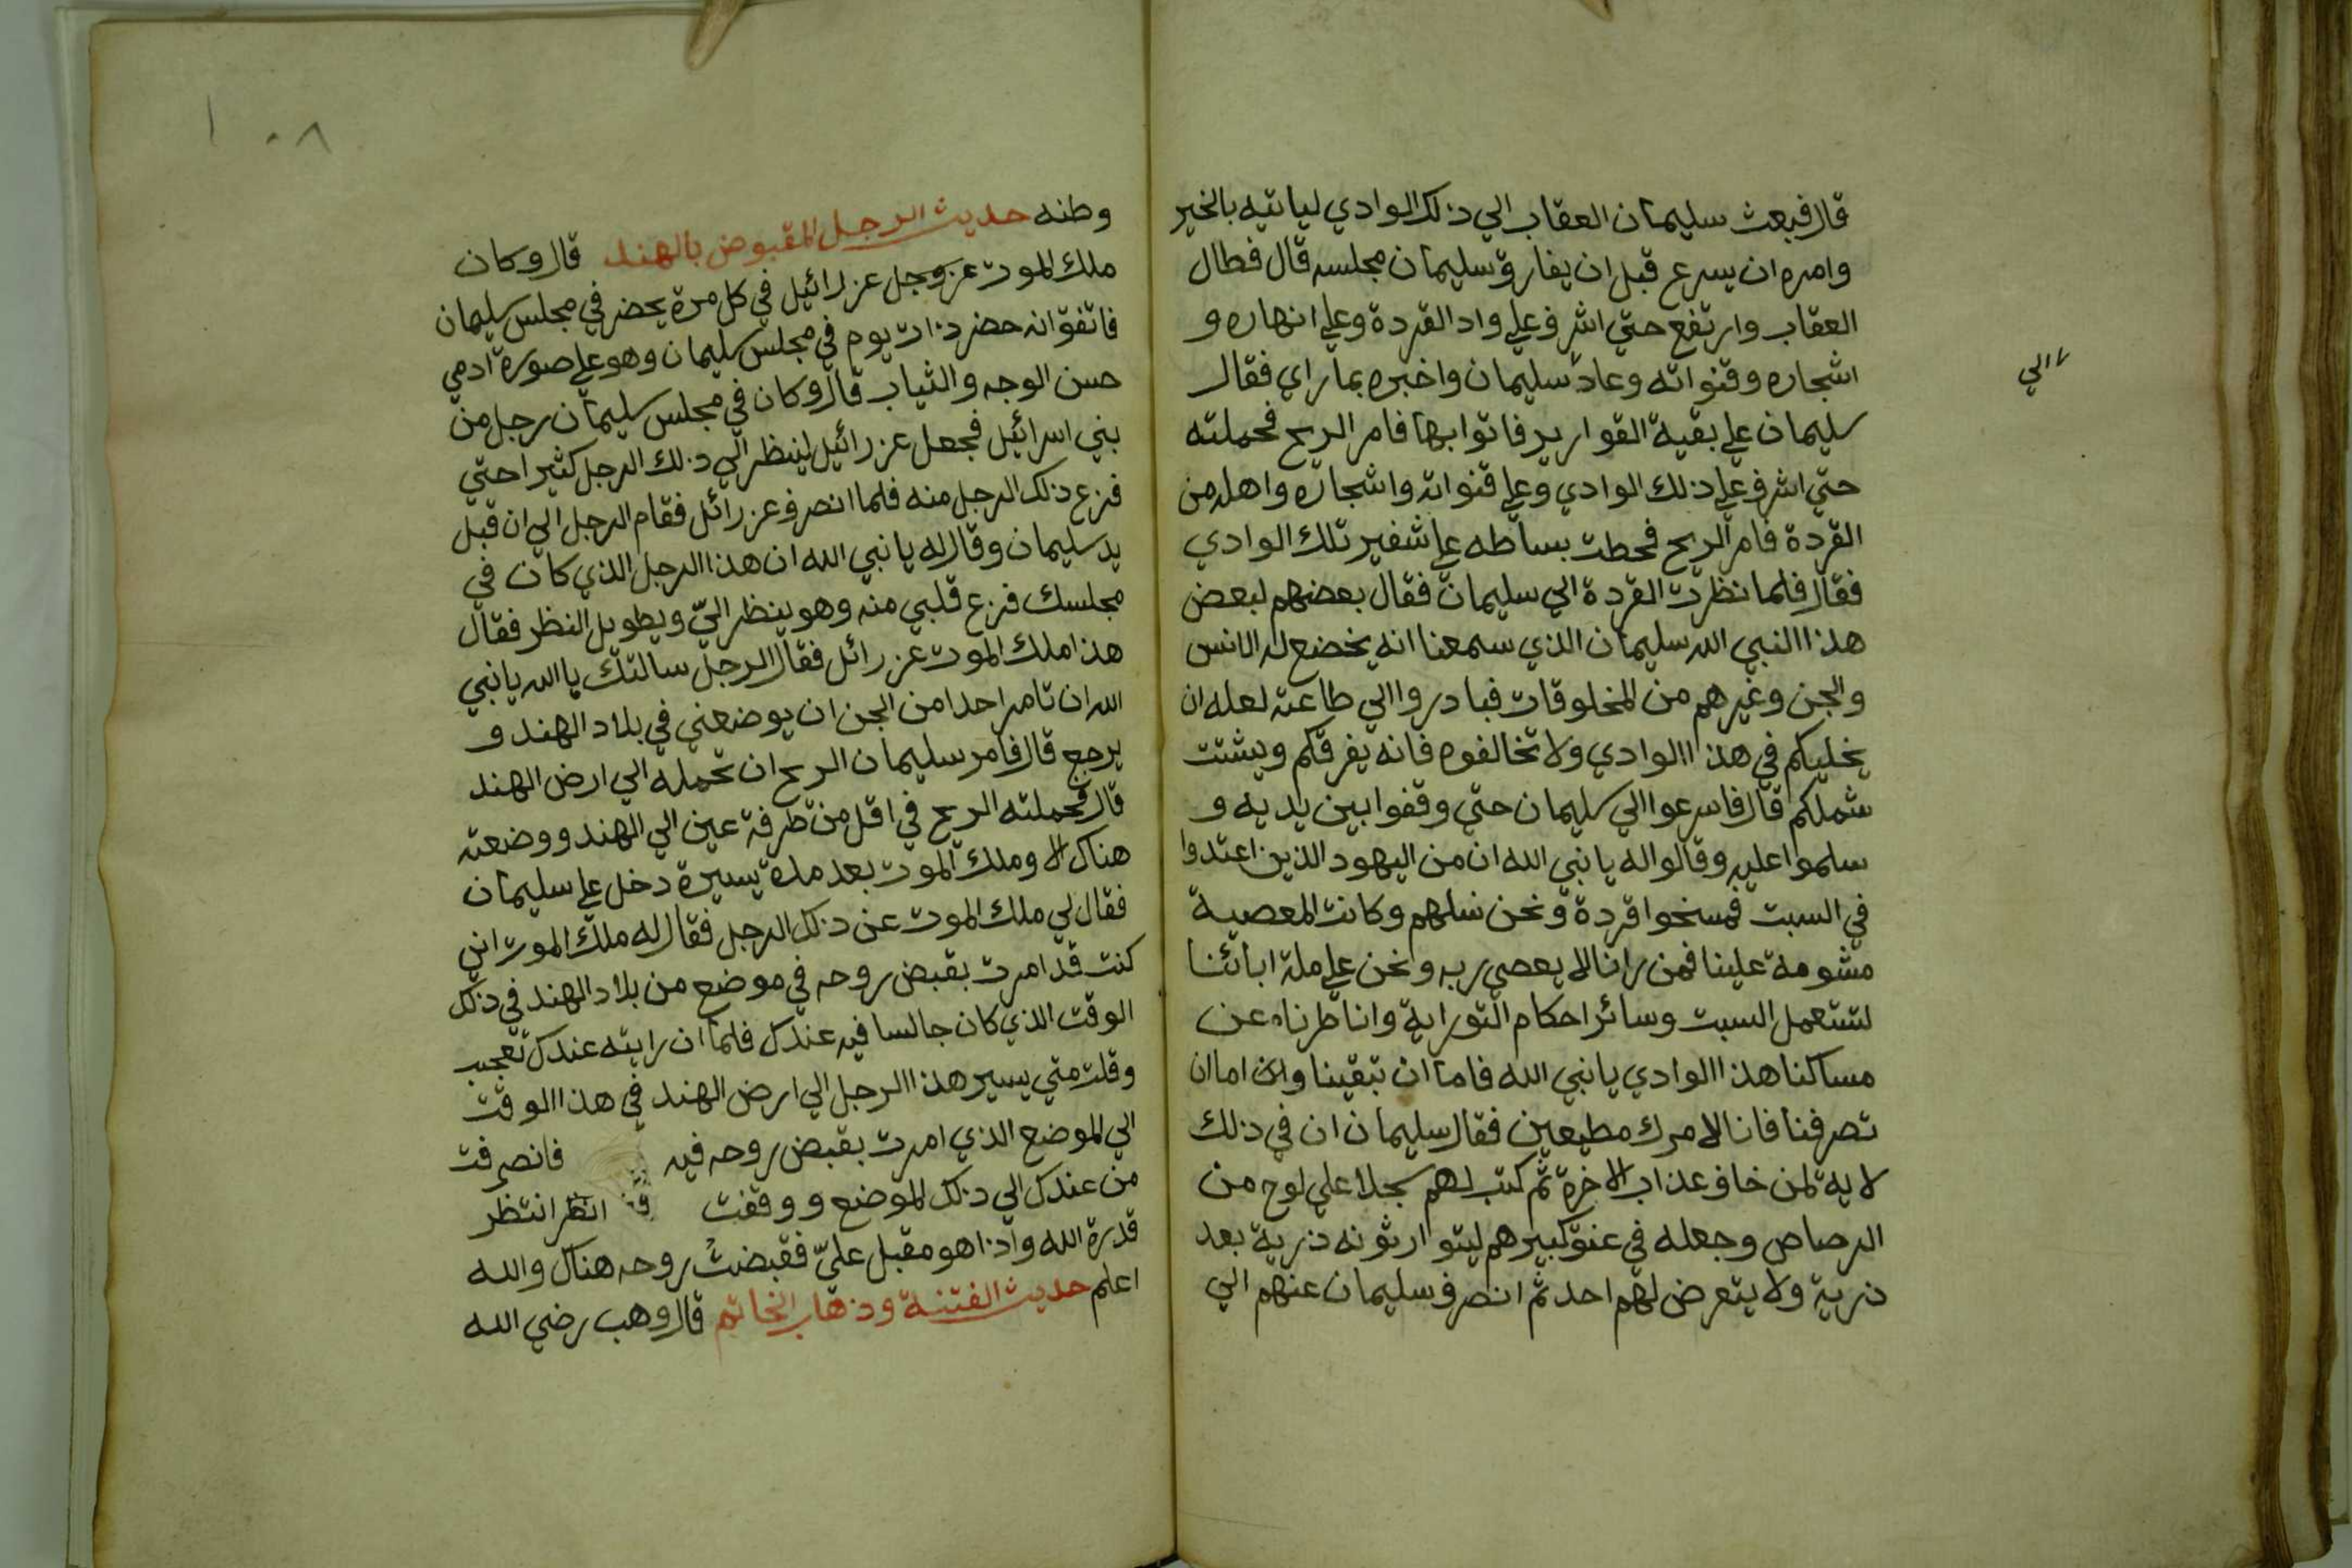 قال فبعث سليمان العقاب الي ذلك الوادي لياتيه بالخبر
وامره ان يسرع قبل ان يفارق سليمان مجلسه قال فطال
العقاب وارتفع حتي اشرف علي واد القردة وعلي انهاره و
اشجاره وقنواته وعاد سليمان واخبره بما راي فقال
الي
سليمان علي بقية القوارير فاتوا بها فامر الريح فحملته
حتي اشرف علي ذلك الوادي وعلي قنواته واشجاره واهله من
القردة فامر الريح فحطت بساطه علي شفير تلك الوادي
فقال فلما نظرت القردة الي سليمان فقال بعضهم لبعض
هذا النبي الله سليمان الذي سمعنا انه يخضع له الانس
والجن وغيرهم من المخلوقات فبادروا الي طاعته لعله ان
يخليكم في هذا الوادي ولا تخالفوه فانه يفرقكم ويشتت
شملكم قال فاسرعوا الي سليمان حتي وقفوا بين يديه و
سلموا عليه وقالوا له يا نبي الله ان من اليهود الذين اعتدوا
في السبت فمسخوا قردة ونحن نسلهم وكانت المعصية
مشومة علينا فمن رانا لا يعصي ربه ونحن علي ملة ابائنا
لنستعمل السبت وسائر احكام التوراية وانا طرناه عن
مساكنا هذا الوادي يا نبي الله فاما ان تبقينا واما ان
تصرفنا فانا لامرك مطيعين فقال سليمان ان في ذلك
لاية لمن خاف عذاب الاخرة ثم كتب لهم سجلا علي لوح من
الرصاص وجعله في عنق كبيرهم ليتوارثونه ذرية بعد
ذرية ولا يتعرض لهم احد ثم انصرف سليمان عنهم الي
١٠٨
وطنه حديث الرجل المقبوض بالهند قال وكان
ملك الموت عز وجل عزرائيل في كل مرة يحضر في مجلس سليمان
فاتفق انه حضر ذات يوم في مجلس سليمان وهو علي صورة ادمي
حسن الوجه والثياب قال وكان في مجلس سليمان رجل من
بني اسرائيل فجعل عزرائيل لينظر الي ذلك الرجل كثيرا حتي
فزع ذلك الرجل منه فلما انصرف عزرائل فقام الرجل الي ان قبل
يد سليمان وقال له يا نبي الله ان هذا الرجل الذي كان في
مجلسك فزع قلبي منه وهو ينظر اليّ ويطويل النظر فقال
هذا ملك الموت عزرائل فقال الرجل سالتك يا الله يا نبي
الله ان تامر احدا من الجن ان يوضعني في بلاد الهند و
يرجع قال فامر سليمان الريح ان تحمله الي ارض الهند
قال فحملته الريح في اقل من طرفة عين الي الهند ووضعته
هناك الا وملك الموت بعد مدة يسيرة دخل علي سليمان
فقال لي ملك الموت عن ذلك الرجل فقال له ملك الموت اني
كنت قد امرت بقبض روحه في موضع من بلاد الهند في ذلك
الوقت الذي كان جالسا فيه عندك فلما ان رايته عندك تعجب
وقلت متي يسير هذا الرجل الي ارض الهند في هذا الوقت
الي الموضع الذي امرت بقبض روحه فيه فانصرفت
من عندك الي ذلك الموضع ووقفت انظر انتظر
قدرة الله واذا هو مقبل عليّ فقبضتُ روحه هناك والله
اعلم حديث الفتنة وذهاب الخاتم قال وهب رضي الله